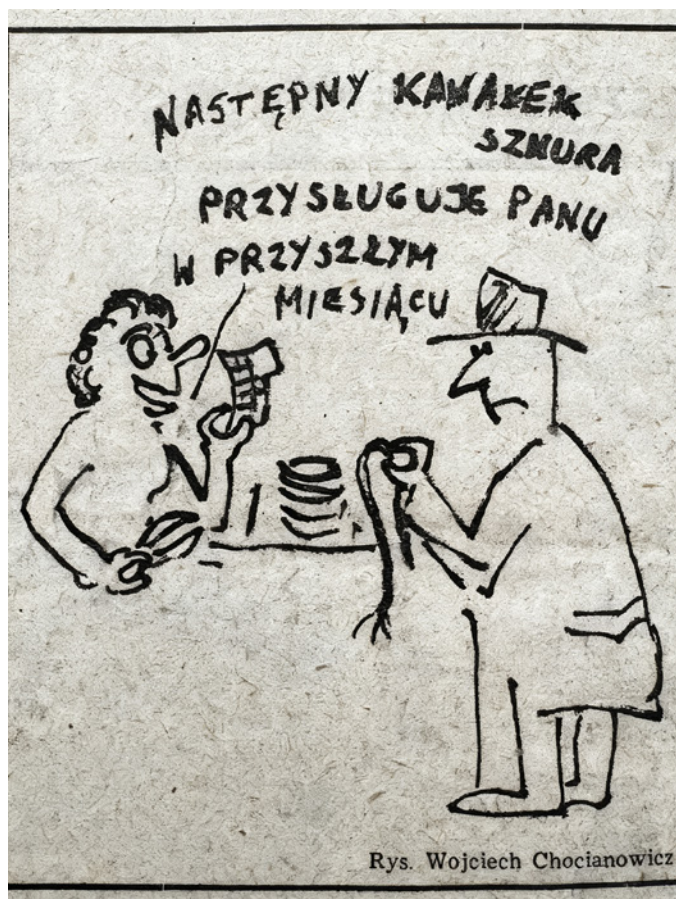 NASTĘPNY KAWAŁEK
SZNURA
PRZYSŁUGUJE PANU
W PRZYSZŁYM
MIESIĄCU
Rys. Wojciech Chocianowicz